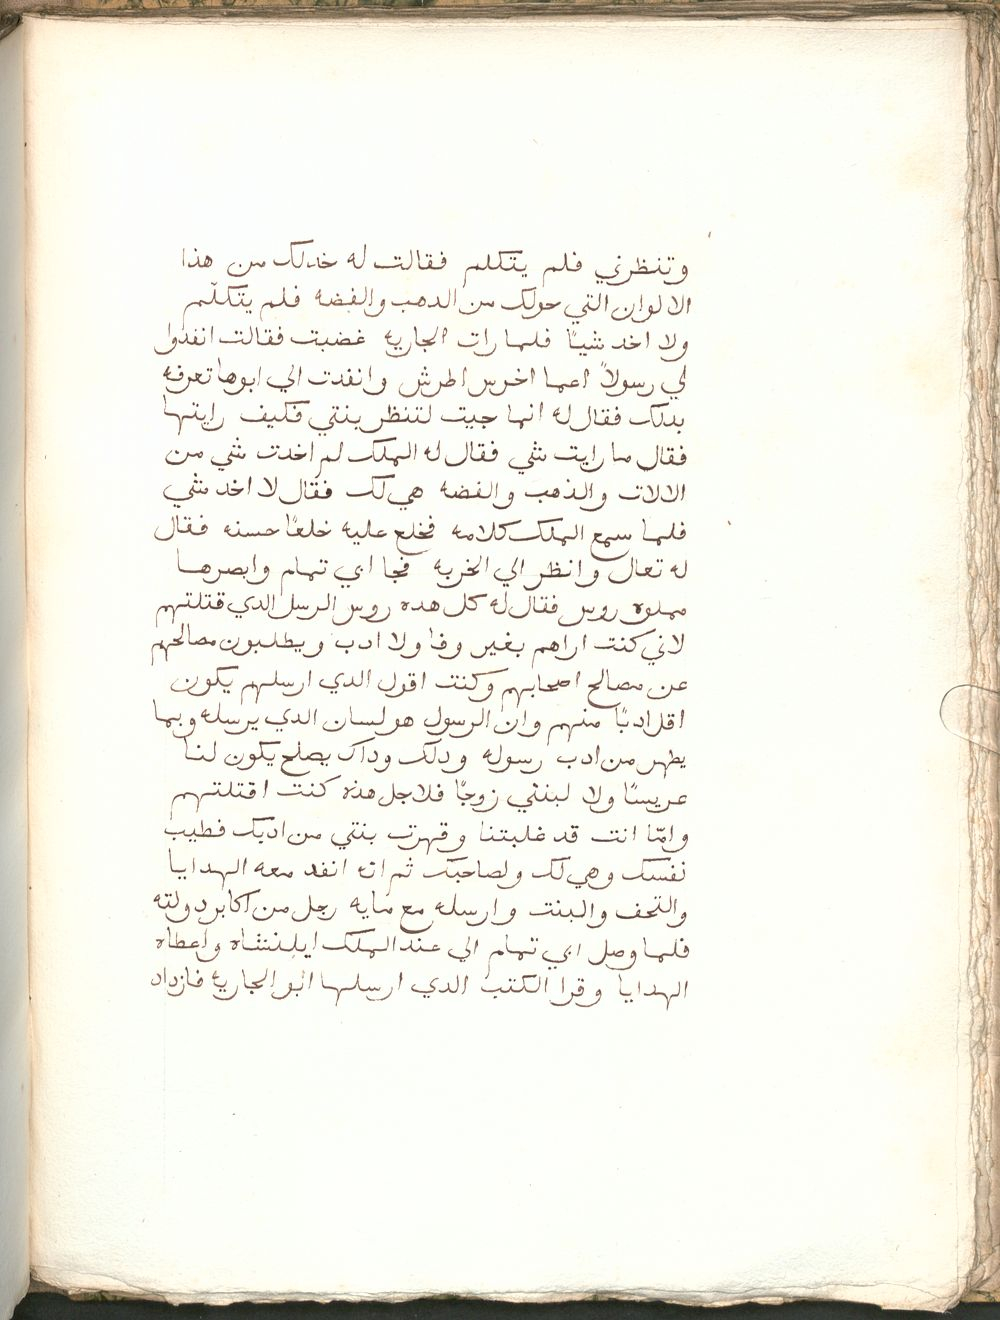 وتنظرني فلم يتكلم فقالت له خدلك من هذا
الالوان التي حولك من الدهب والفضه فلم يتكلّم
ولا اخد شيئًا فلما رات الجاريه غضبت فقالت انفدوا
لي رسولاً اعما اخرس اطرش وانفدت الي ابوها تعرفه
بدلك فقال له انما جيت لتنظر بنتي فكيف رايتها
فقال ما رايت شي فقال له الملك لم اخدت شي من
الالات والذهب والفضه هي لك فقال لا اخد شي
فلما سمع الملك كلامه فخلع عليه خلعًا حسنه فقال
له تعال وانظر الي الخربه فجا ابي تمام وابصرها
مملوه روس فقال له كل هده روس الرسل الدي قتلتهم
لاني كنت اراهم بغير وفا ولا ادب ويطلبون مصالحهم
عن مصالح اصحابهم وكنت اقول الدي ارسلهم يكون
اقل ادبًا منهم وان الرسول هو لسان الدي يرسله وبما
يظهر من ادب رسوله ودلك وداك يصلح يكون لنا
عريسًا ولا لبنتي زوجًا فلاجل هذه كنت اقتلتهم
وامّا انت قد غلبتنا وقهرت بنتي من ادبك فطيب
نفسك وهي لك ولصاحبك ثم انه انفد معه الهدايا
والتحف والبنت وارسله مع مايه رجل من اكابر دولته
فلما وصل ابي تمام الي عند الملك ايلنشاه واعطاه
الهدايا وقرا الكتب الدي ارسلها ابو الجاريه فازداد